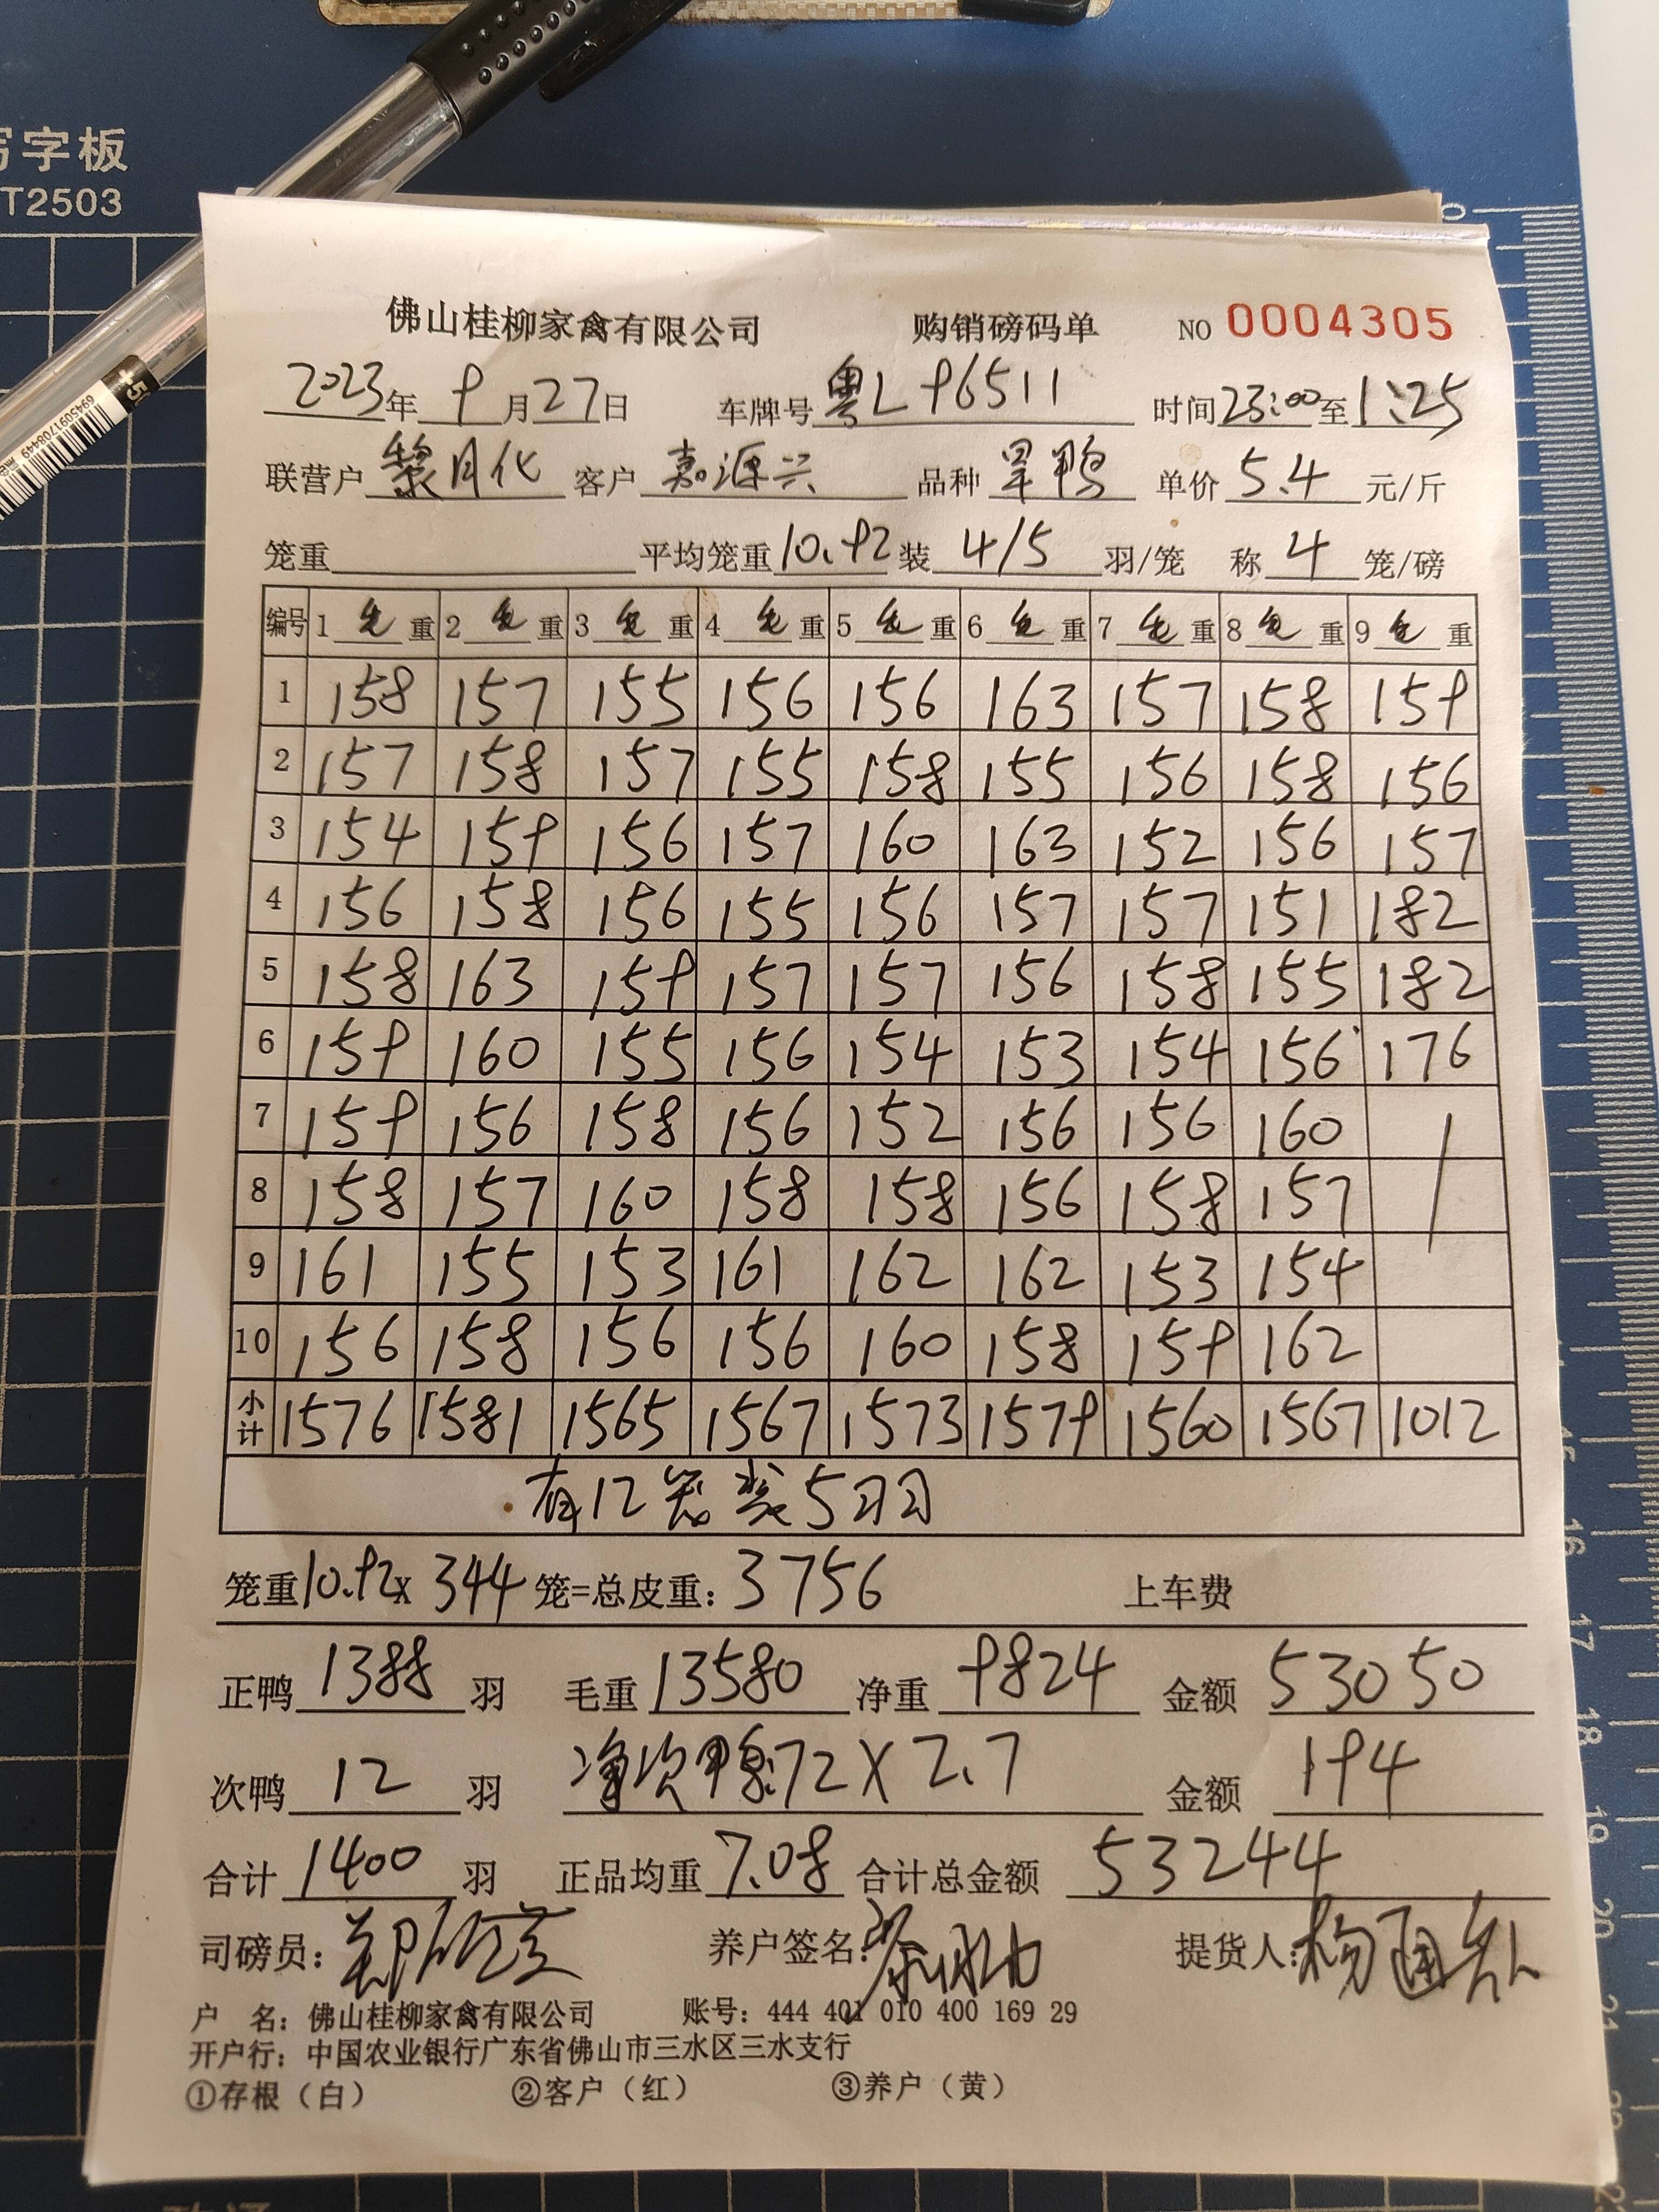 写字板
T2503
+50
6945091708449
佛山桂柳家禽有限公司 购销磅码单 NO 0004305
2023年 9月27日 车牌号 粤L 96511 时间23:00至1:25
联营户 黎月化 客户 嘉源兴 品种 旱鸭 单价 5.4 元/斤
笼重 平均笼重10.92 装 4/5 羽/笼 称 4 笼/磅
编号 1 毛 重 2 毛 重 3 毛 重 4 毛 重 5 毛 重 6 毛 重 7 毛 重 8 毛 重 9 毛 重
1 158 157 155 156 156 163 157 158 159
2 157 158 157 155 158 155 156 158 156
3 154 159 156 157 160 163 152 156 157
4 156 158 156 155 156 157 157 151 182
5 158 163 159 157 157 156 158 155 182
6 159 160 155 156 154 153 154 156 176
7 159 156 158 156 152 156 156 160
8 158 157 160 158 158 156 158 157
9 161 155 153 161 162 162 153 154
10 156 158 156 156 160 158 159 162
小计 1576 1581 1565 1567 1573 1579 1560 1567 1012
有12笼装5羽
笼重10.92x 344 笼=总皮重：3756 上车费
正鸭 1388 羽 毛重 13580 净重 9824 金额 53050
次鸭 12 羽 净次鸭:72 X 2.7 金额 194
合计 1400 羽 正品均重 7.08 合计总金额 53244
司磅员： 养户签名： 提货人：
户 名：佛山桂柳家禽有限公司 账号：444 401 010 400 169 29
开户行：中国农业银行广东省佛山市三水区三水支行
①存根（白） ②客户（红） ③养户（黄）
0
16
17
18
19
20
21